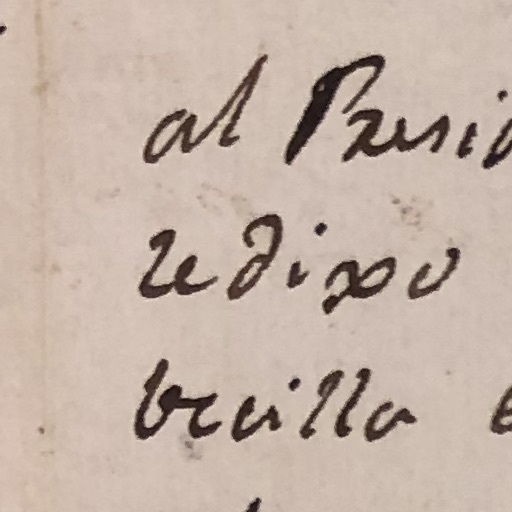 al Presid
re dixo
brailla